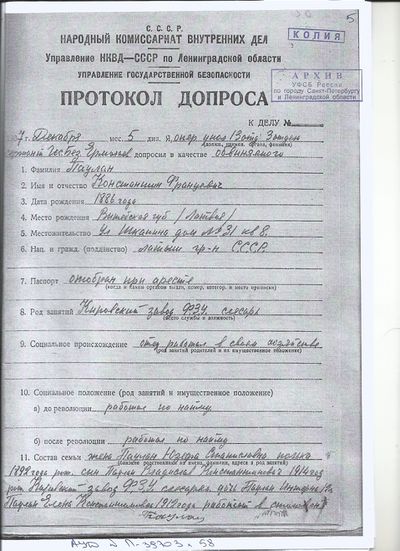 5
КОПИЯ
С. С. С. Р.
НАРОДНЫЙ КОМИССАРИАТ ВНУТРЕННИХ ДЕЛ
Управление НКВД—СССР по Ленинградской области
УПРАВЛЕНИЕ ГОСУДАРСТВЕННОЙ БЕЗОПАСНОСТИ
АРХИВ
УФСБ России
по городу Санкт-Петербургу
и Ленинградской области
ПРОТОКОЛ ДОПРОСА
К ДЕЛУ №
7 г. Декабря мес. 5 дня. Я, опер упол
(должн., наимен. органа, фамилия)
допросил в качестве обвиняемого
1. Фамилия Паулан
2. Имя и отчество Константин Францевич
3. Дата рождения 1886 года
4. Место рождения Витебская губ /Латвия/
5. Местожительство дом № 31 кв 8.
6. Нац. и гражд. (подданство) латыш гр-н СССР.
7. Паспорт отобран при аресте
(когда и каким органом выдан, номер, категор. и место прописки)
8. Род занятий Кировский завод ФЗУ слесарь
(место службы и должность)
9. Социальное происхождение отец работал в своем хозяйстве
(род занятий родителей и их имущественное положение)
10. Социальное положение (род занятий и имущественное положение)
а) до революции работал по найму
б) после революции работал по найму
11. Состав семьи жена Паулан Станиславовна полька
(близкие родственники, их имена, фамилии, адреса и род занятий)
сын Паулан Владислав Константинович 1914 год
Кировский завод ФЗУ слесарь дочь Паулан
Паулан Елена Константиновна работает в